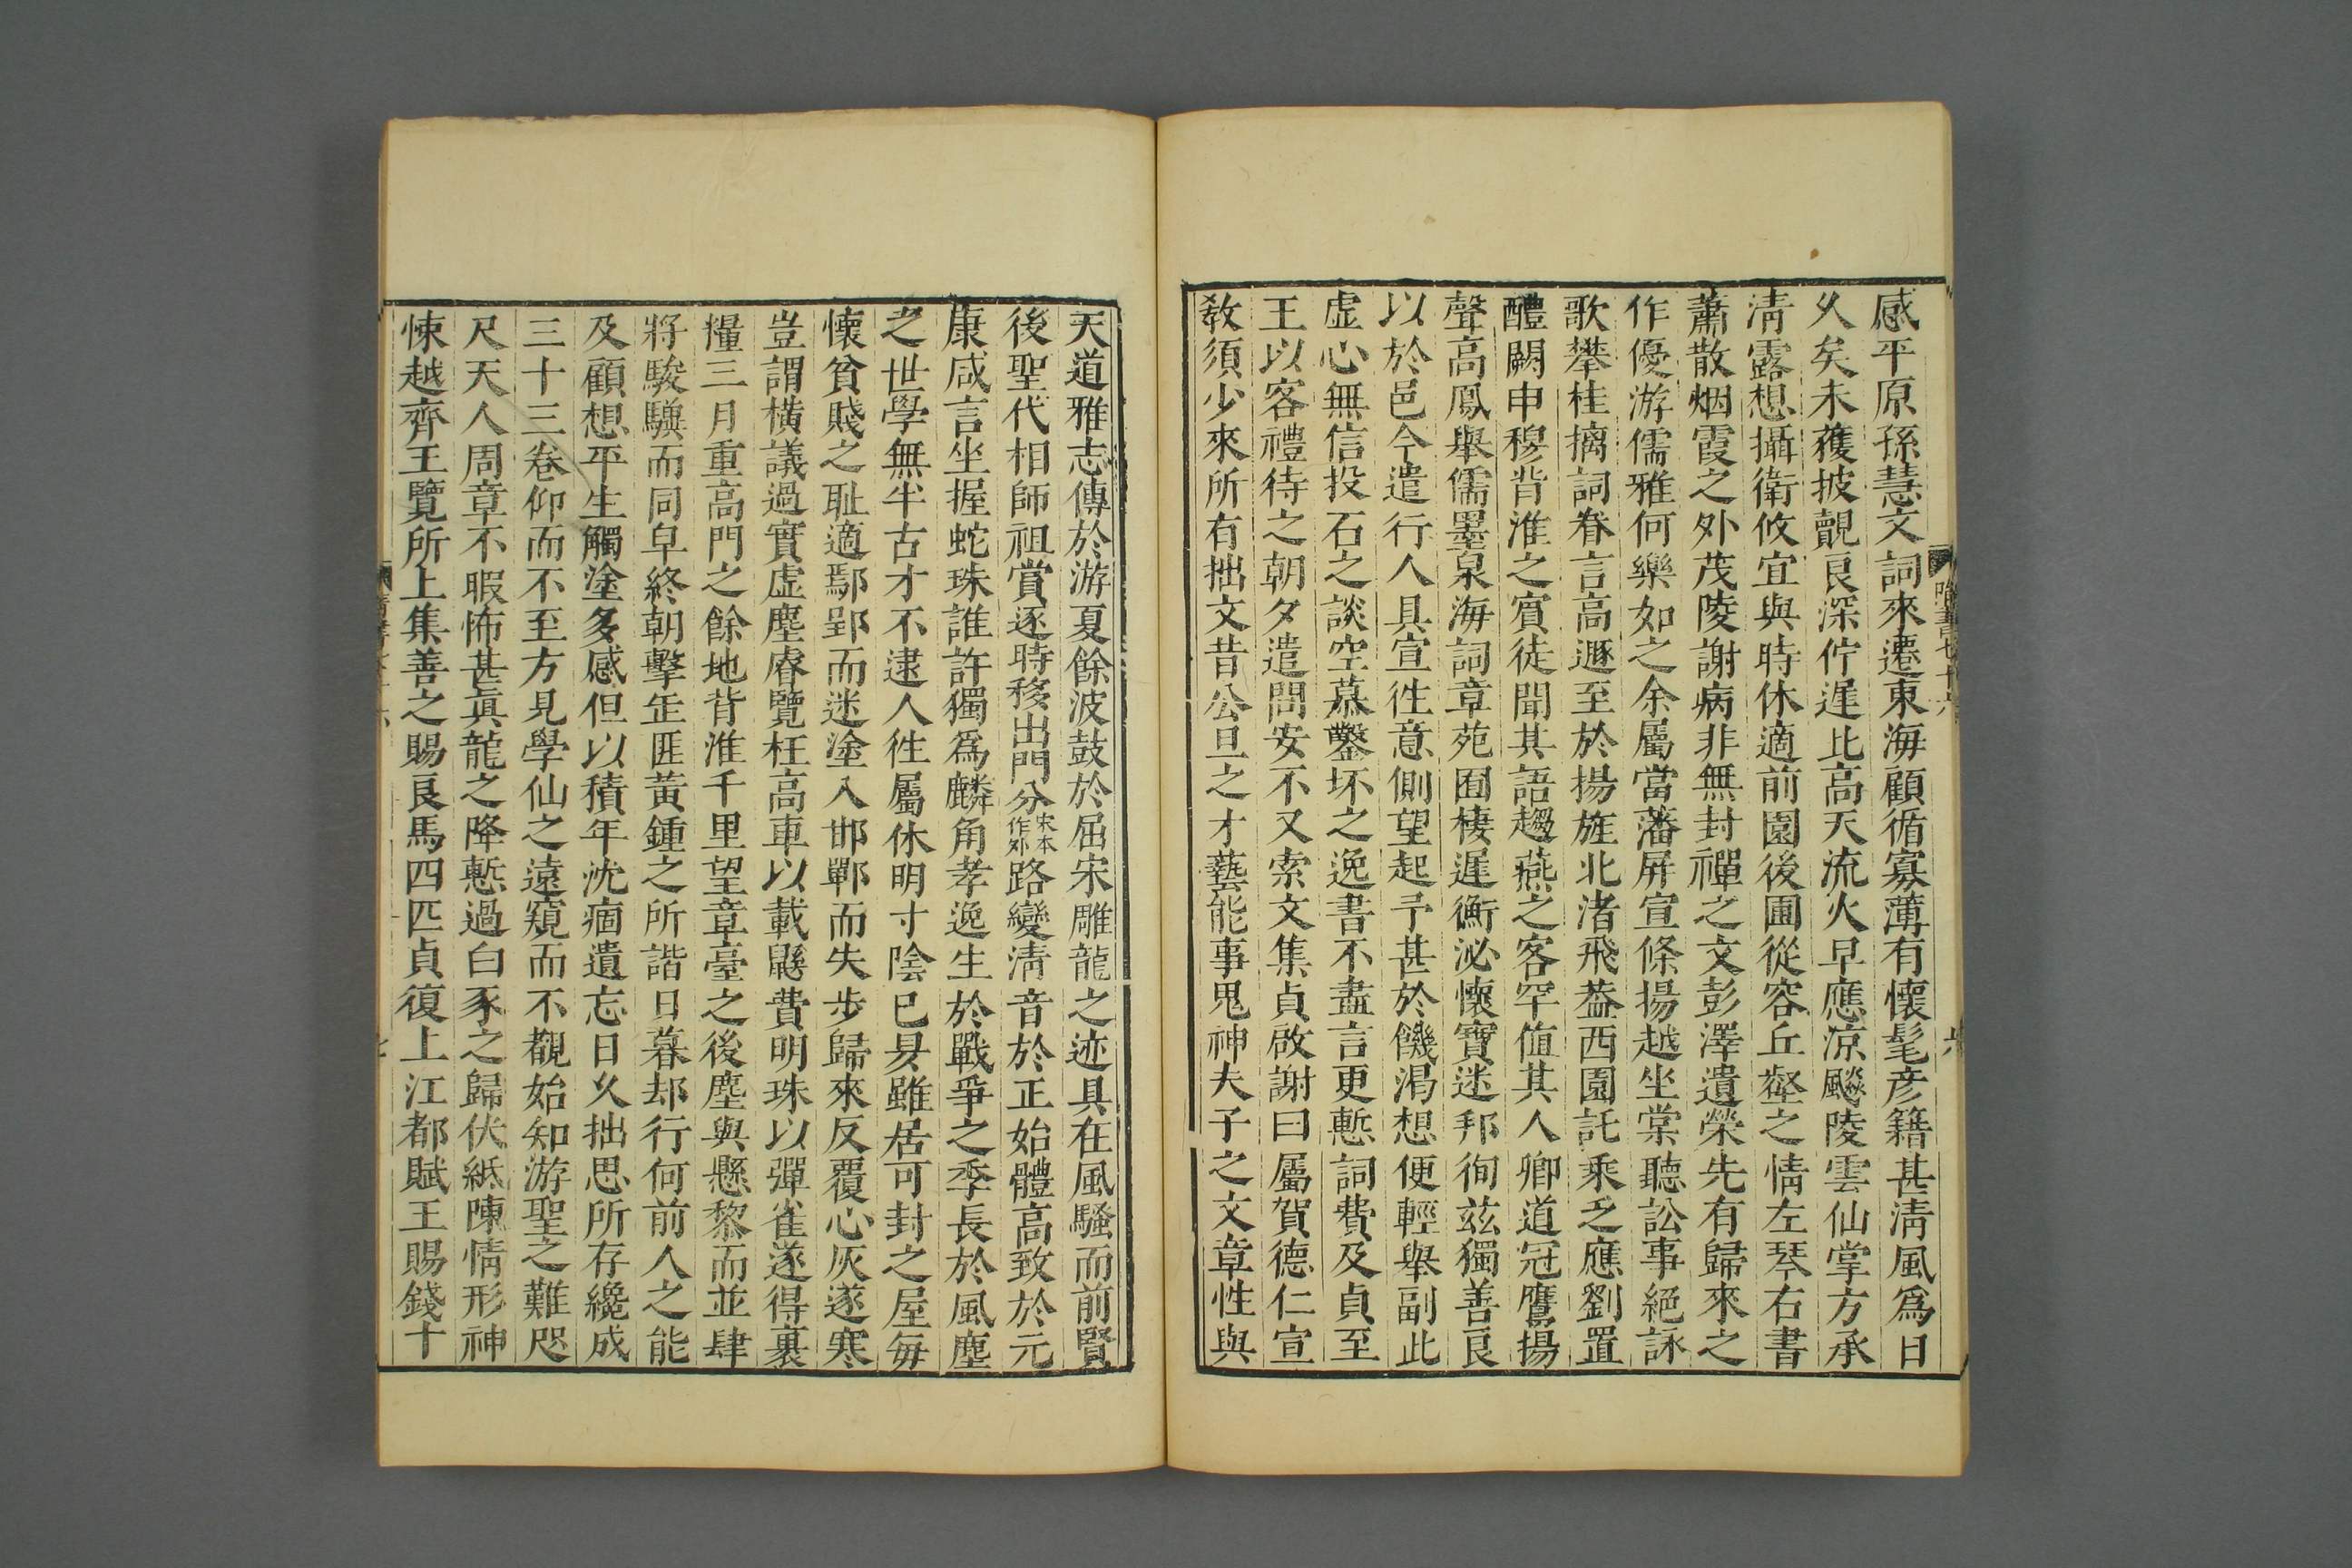 感平原孫慧文詞來遷東海顧循寡薄有懷髦彥籍甚淸風爲日
久矣未獲披覿良深佇遲比高天流火早應凉飈陵雲仙掌方承
淸露想攝衛攸宜與時休適前園後圃從容丘壑之情左琴右書
蕭散烟霞之外茂陵謝病非無封禪之文彭澤遺榮先有歸來之
作優游儒雅何樂如之余屬當藩屏宣條揚越坐棠聽訟事絕詠
歌攀桂摛詞眷言高遯至於揚旌北渚飛葢西園託乘乏應劉置
醴闕申穆背淮之賓徒聞其語趨燕之客罕值其人卿道冠鷹揚
聲高鳳舉儒墨泉海詞章苑囿棲遲衡泌懷寶迷邦徇兹獨善良
以於邑今遣行人具宣徃意側望起予甚於饑渴想便輕舉副此
虛心無信投石之談空慕鑿坏之逸書不盡言更慙詞費及貞至
王以客禮待之朝夕遣問安不又索文集貞啟謝曰屬賀德仁宣
敎須少來所有拙文昔公旦之才藝能事鬼神夫子之文章性與
隋書七十六
六
天道雅志傳於游夏餘波鼓於屈宋雕龍之迹具在風騷而前賢
後聖代相師祖賞逐時移出門分宋本作外路變淸音於正始體高致於元
康咸言坐握蛇珠誰許獨爲麟角孝逸生於戰爭之季長於風塵
之世學無半古才不逮人徃屬休明寸陰已昃雖居可封之屋每
懷貧賤之耻適鄢郢而迷塗入邯鄲而失步歸來反覆心灰遂寒
豈謂橫議過實虛塵睿覽枉高車以載鼷費明珠以彈雀遂得裹
糧三月重高門之餘地背淮千里望章臺之後塵與懸黎而並肆
將駿驥而同皁終朝擊缶匪黃鍾之所諧日暮却行何前人之能
及顧想平生觸塗多感但以積年沈痼遺忘日久拙思所存纔成
三十三卷仰而不至方見學仙之遠窺而不覩始知游聖之難咫
尺天人周章不暇怖甚眞龍之降慙過白豕之歸伏紙陳情形神
悚越齊王覽所上集善之賜良馬四匹貞復上江都賦王賜錢十